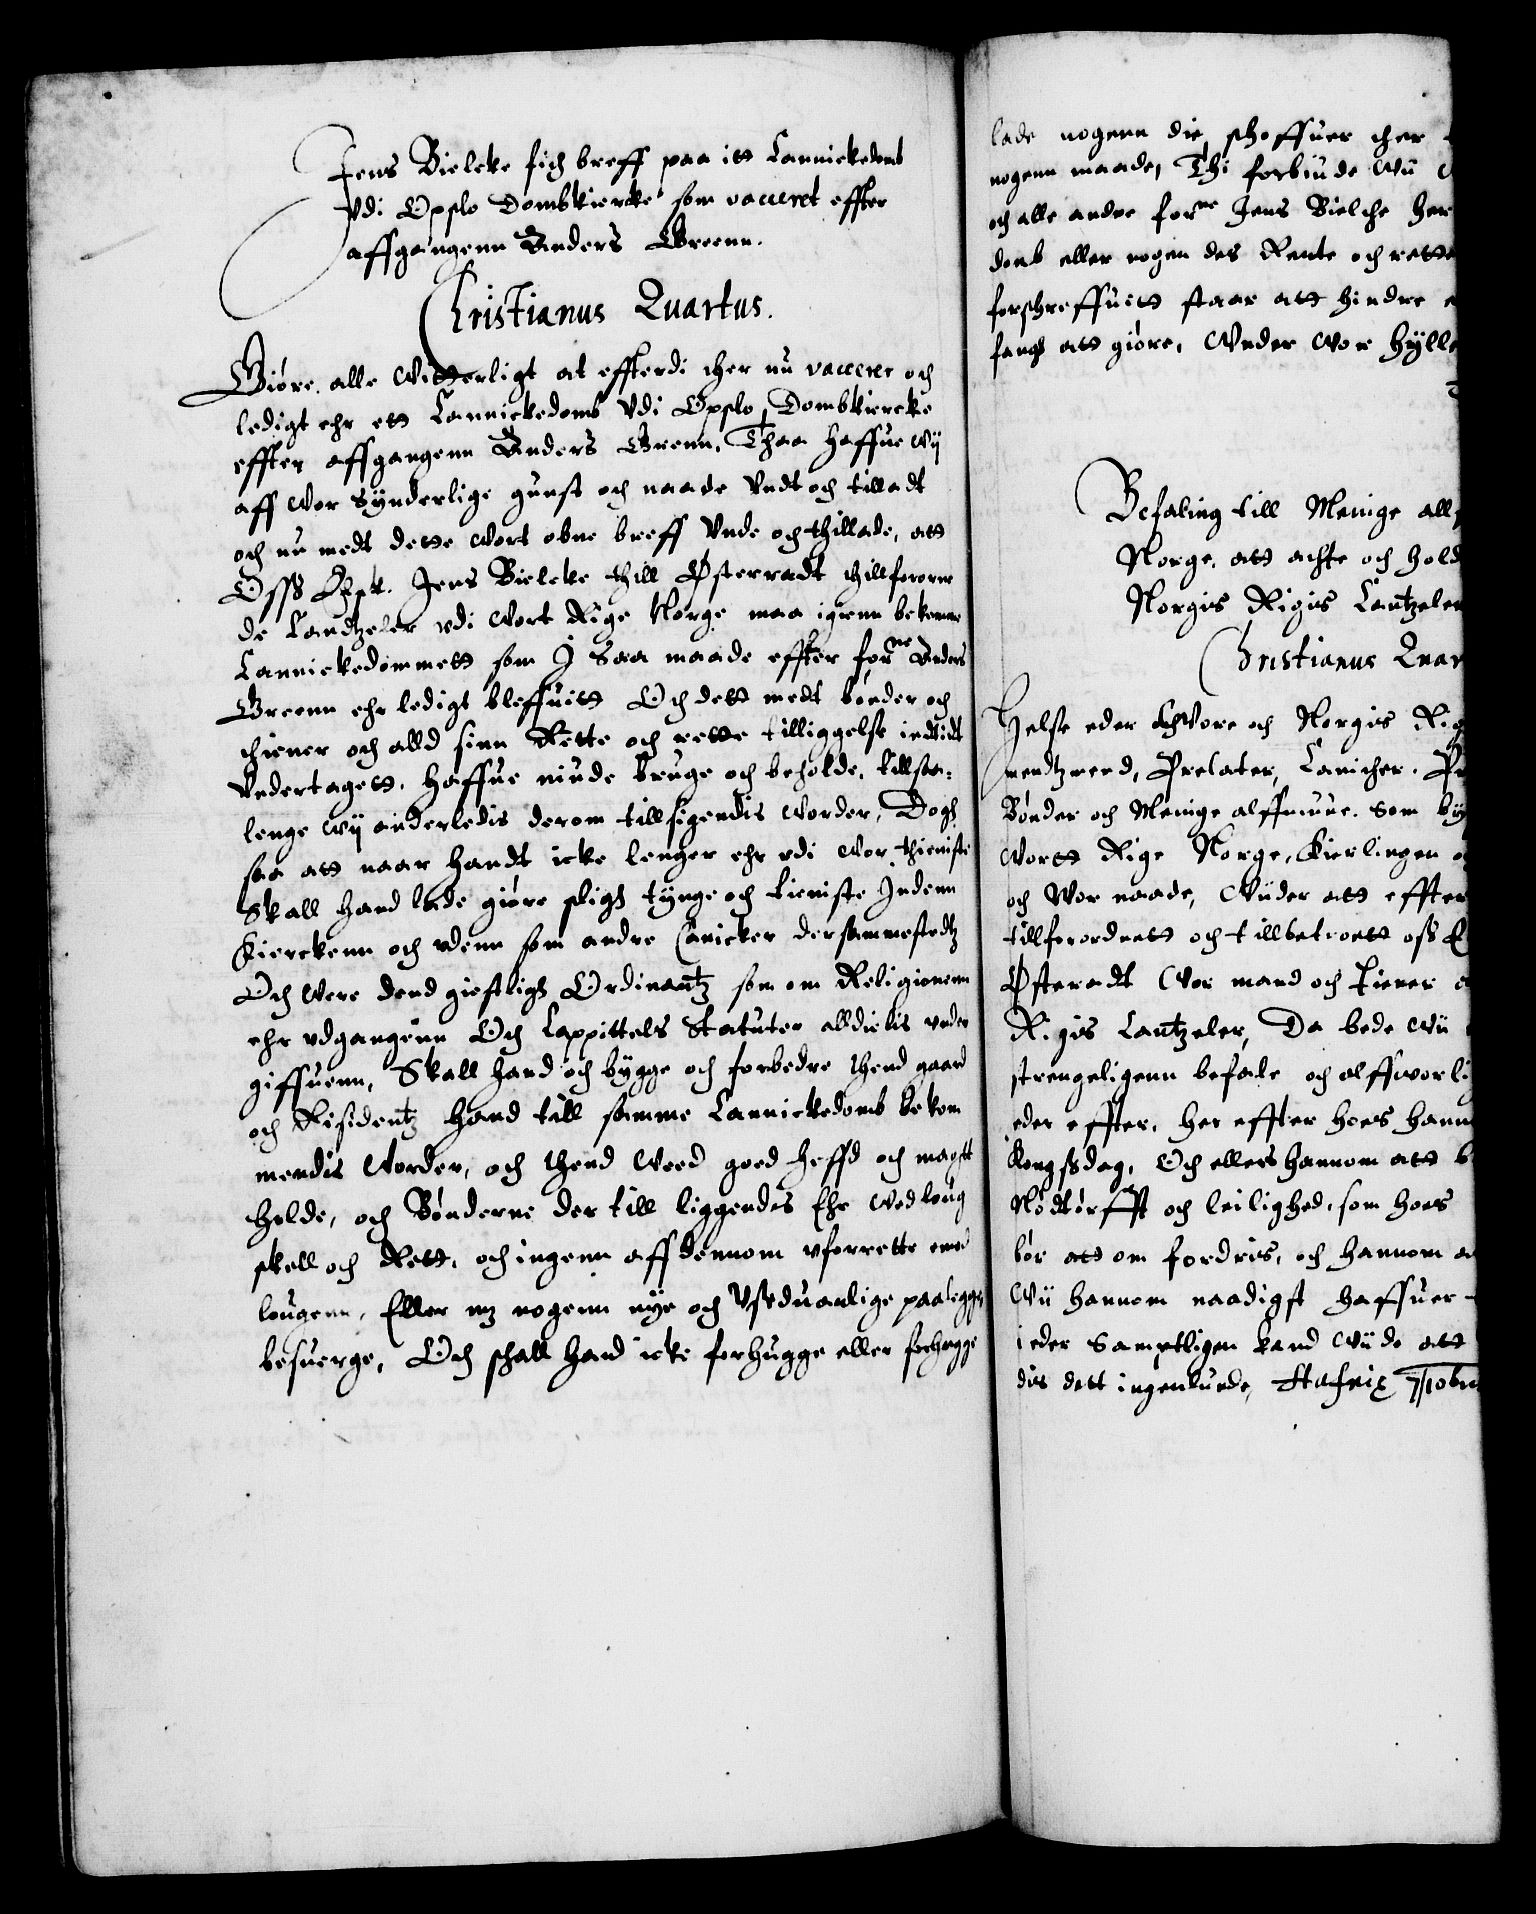 Jens Bielcke fich breff paa itt Cannickedomb
Vdi Opslo Dombkiercke som vacceret effter
affgangenn Anders Greenn.
Christianus Quartus.
Giøre alle Witterligt at effterdi her nu vaccerer och
ledigt ehr ett Cannickedomb Vdi Opslo Dombkiercke
effter affgangenn Anders Grenn, Thaa haffue wij
aff wor Synderlige gunst och naade Vndt och tilladt
och nu medt dette wort obne breff Vnde och thillade, att
Oss Elsk. Jens Bielcke thill Østerradt thillfororne
de Candtzeler vdi wort Rige Norge maa igienn bekomme
Cannickedommett som J Saa maade effter forne Anders
Greenn ehr ledigt bleffuitt Och dett medt bønder och
thiener och alld sinn Rette och rette tilliggelse indtidt
Vndertagett, haffue niude bruge och beholde, tillsaa-
lenge wij anderledis derom tillsigendis worder, Dogh
saa att naar handt icke lenger ehr vdi wor thieniste
Skall hand lade giøre sligh tÿnge och tieniste Jndenn
Kierckenn och vdenn som andre Canicker dersammestedtz
Och were dend giestligh Ordinantz som om Religionenn
ehr vdgangenn Och Cappittels Statuter alldielis vnder
giffuenn, Skall hand och bygge och forbedre thend gaard
och Residentz hand till samme Cannickedomb bekom
mendis worder, och thend weed goed heffd och magtt
holde, och Bønderne der till liggendes Ehr wed loug
skell och Rett, och ingenn aff dennom vforrette emod
lougenn, Eller mz nogenn nÿe och Vseduanlige paalegge
besuerge, Och schall hand icke forhugge eller forhugge
lade nogenn die schoffuer ther
nogenn maade, Thi forbiude wij
och alle andre forne Jens Bielche her
domb eller nogen des Rente och rette
forschreffuitt staar att hindre
fang att giøre, Vnder wor hÿlle
Befaling till Menige all
Norge, att achte och hold
Norgis Rigis Cantzeler
Christianus Quar
Helse eder wore och Norgis Rig
mendtzmend, Prelater, Canicher, Pr
Bønder och Menige alffmuue, Som by
wortt Rige Norge, Kierlingen
och wor naade, Wider att effter
tillforordnett och tillbetroett oss
Østeradt wor mand och tiener
Rigis Cantzeler, Da bede wij
strengeligenn befale och alffworlig
eder effter, her effter hoes hann
Kongssdag, Och ellers hannom att
Nødtørfft och leilighed, som hoes
bør att om fordris, och hannom
wij hannom naadigst haffuer
i eder Samptligen kand wide att
dis dett ingenlunde, Hafniæ